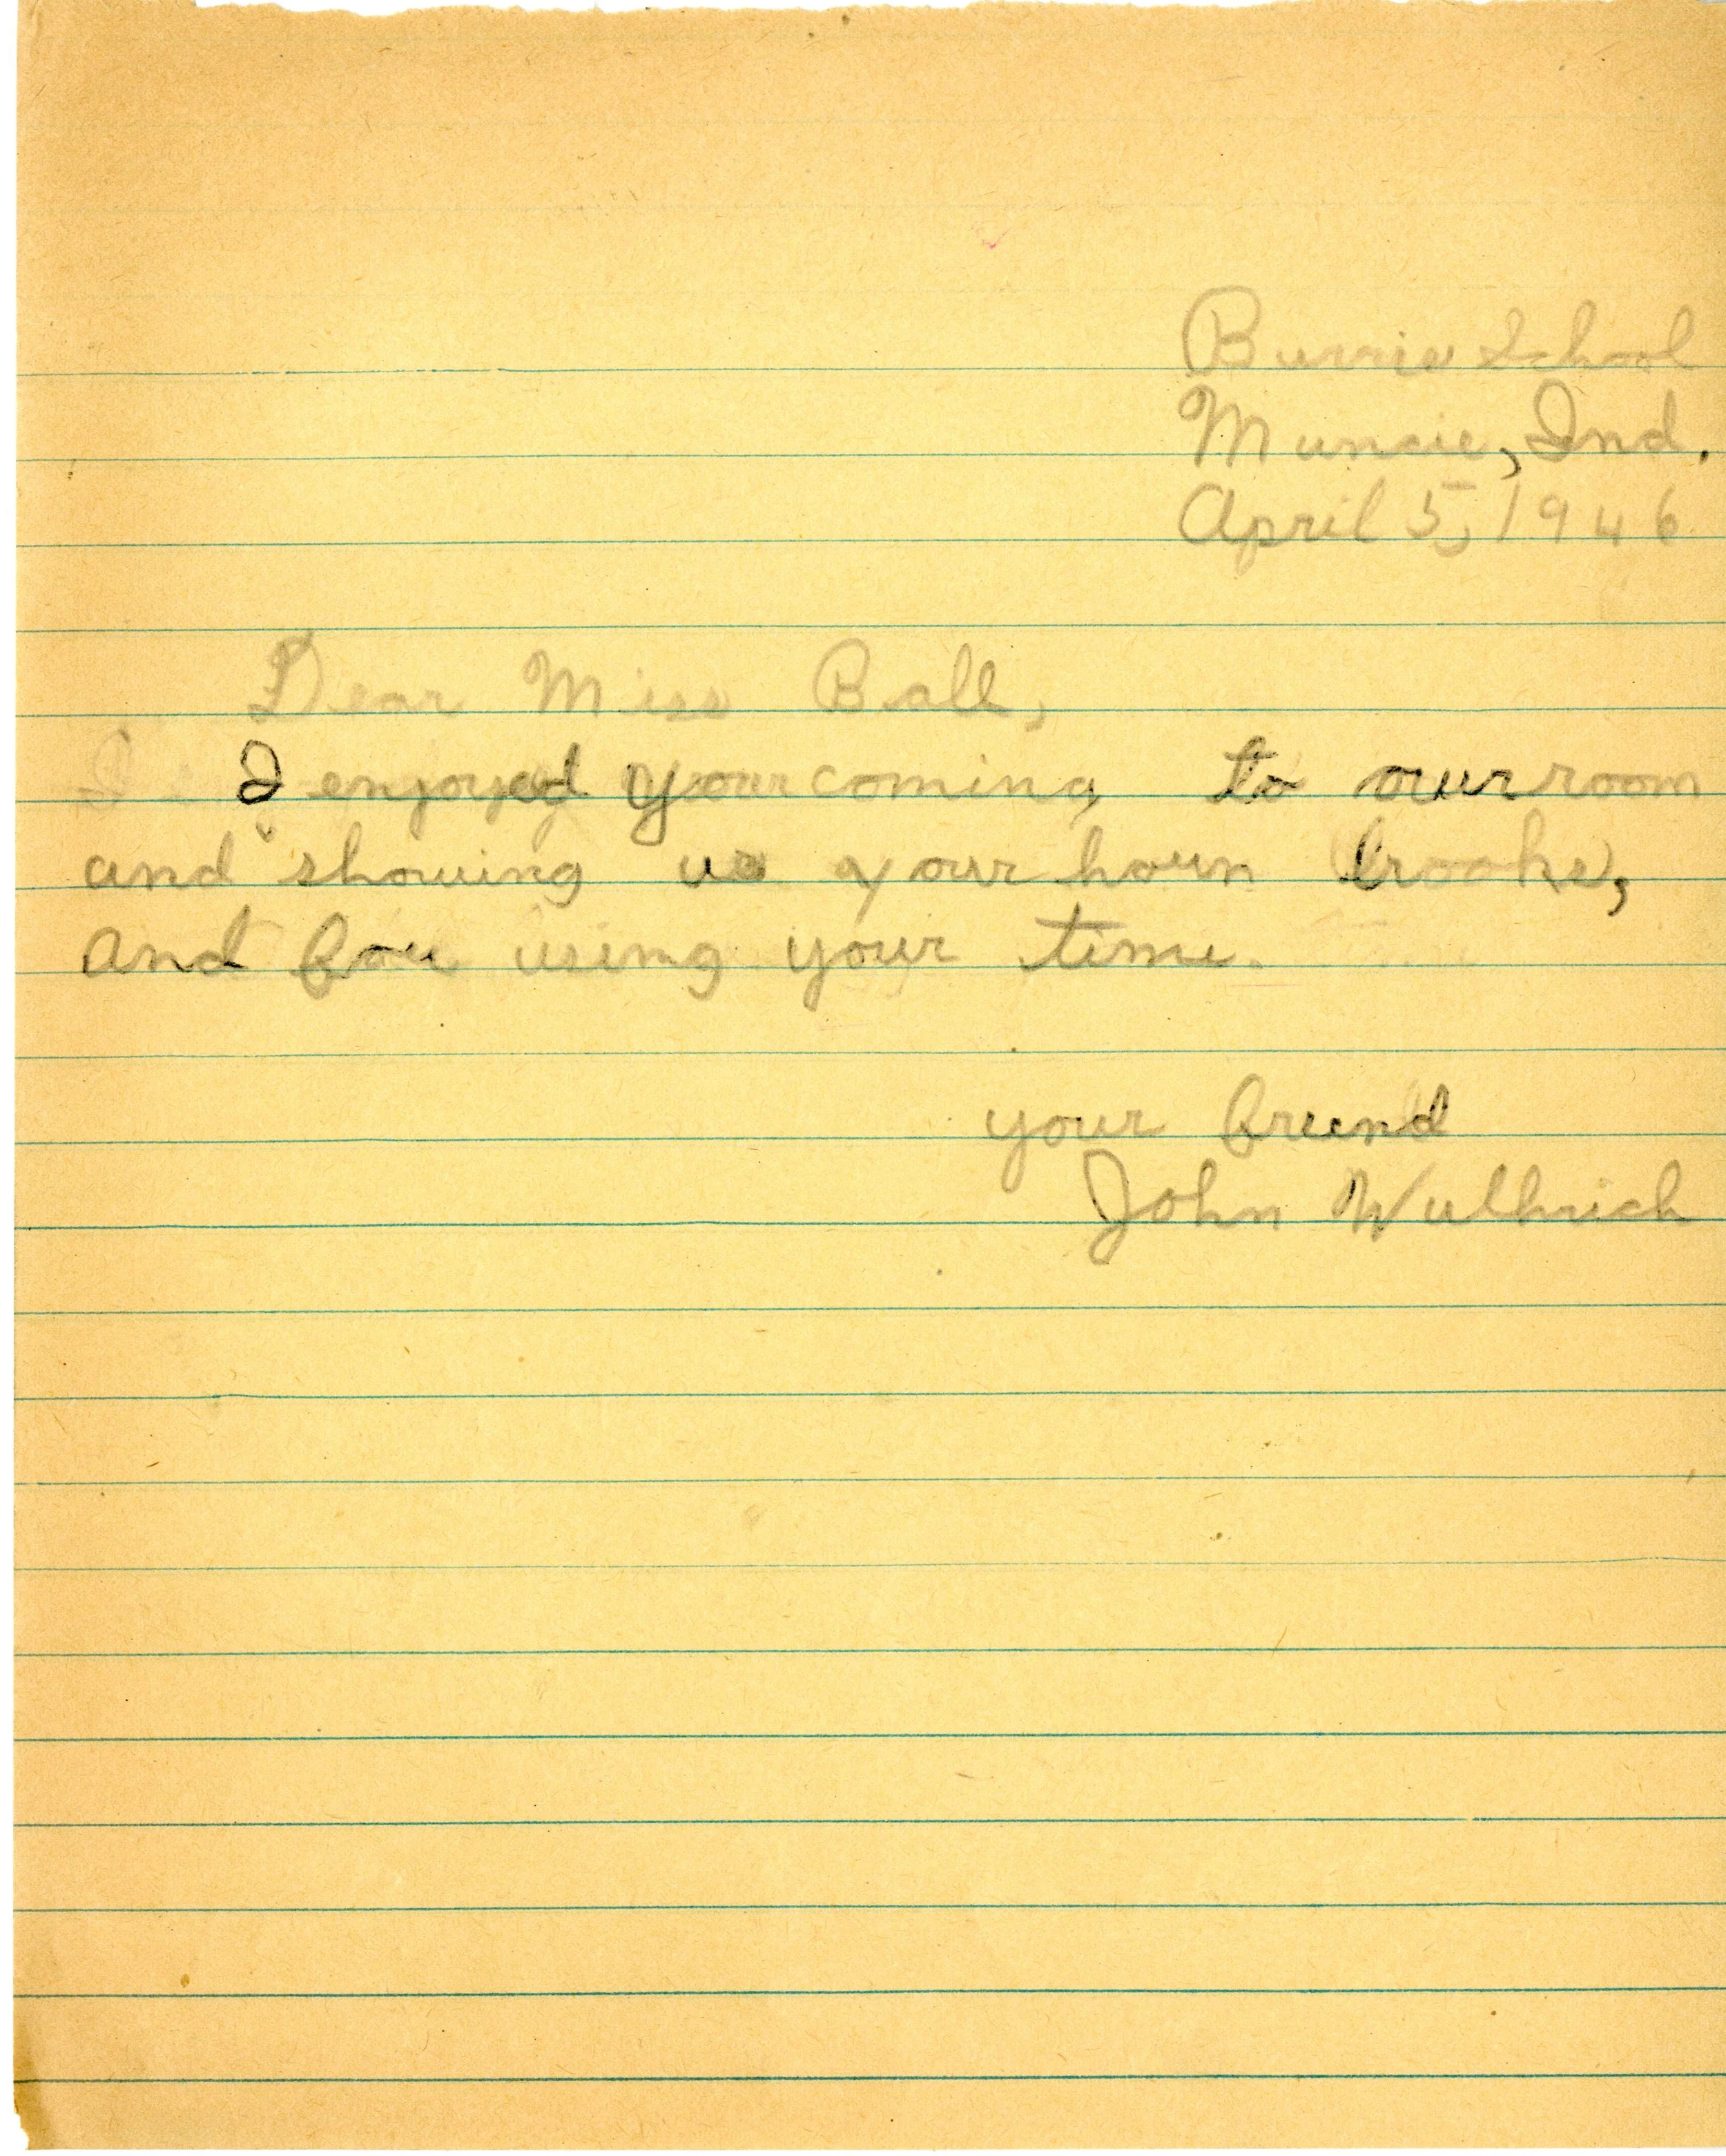 Burris School
Muncie, Ind.
April 5, 1946
Dear Miss Ball,
I enjoyed your coming to our room
and showing us your horn books,
and for using your time.
your freind
John Wulhrich